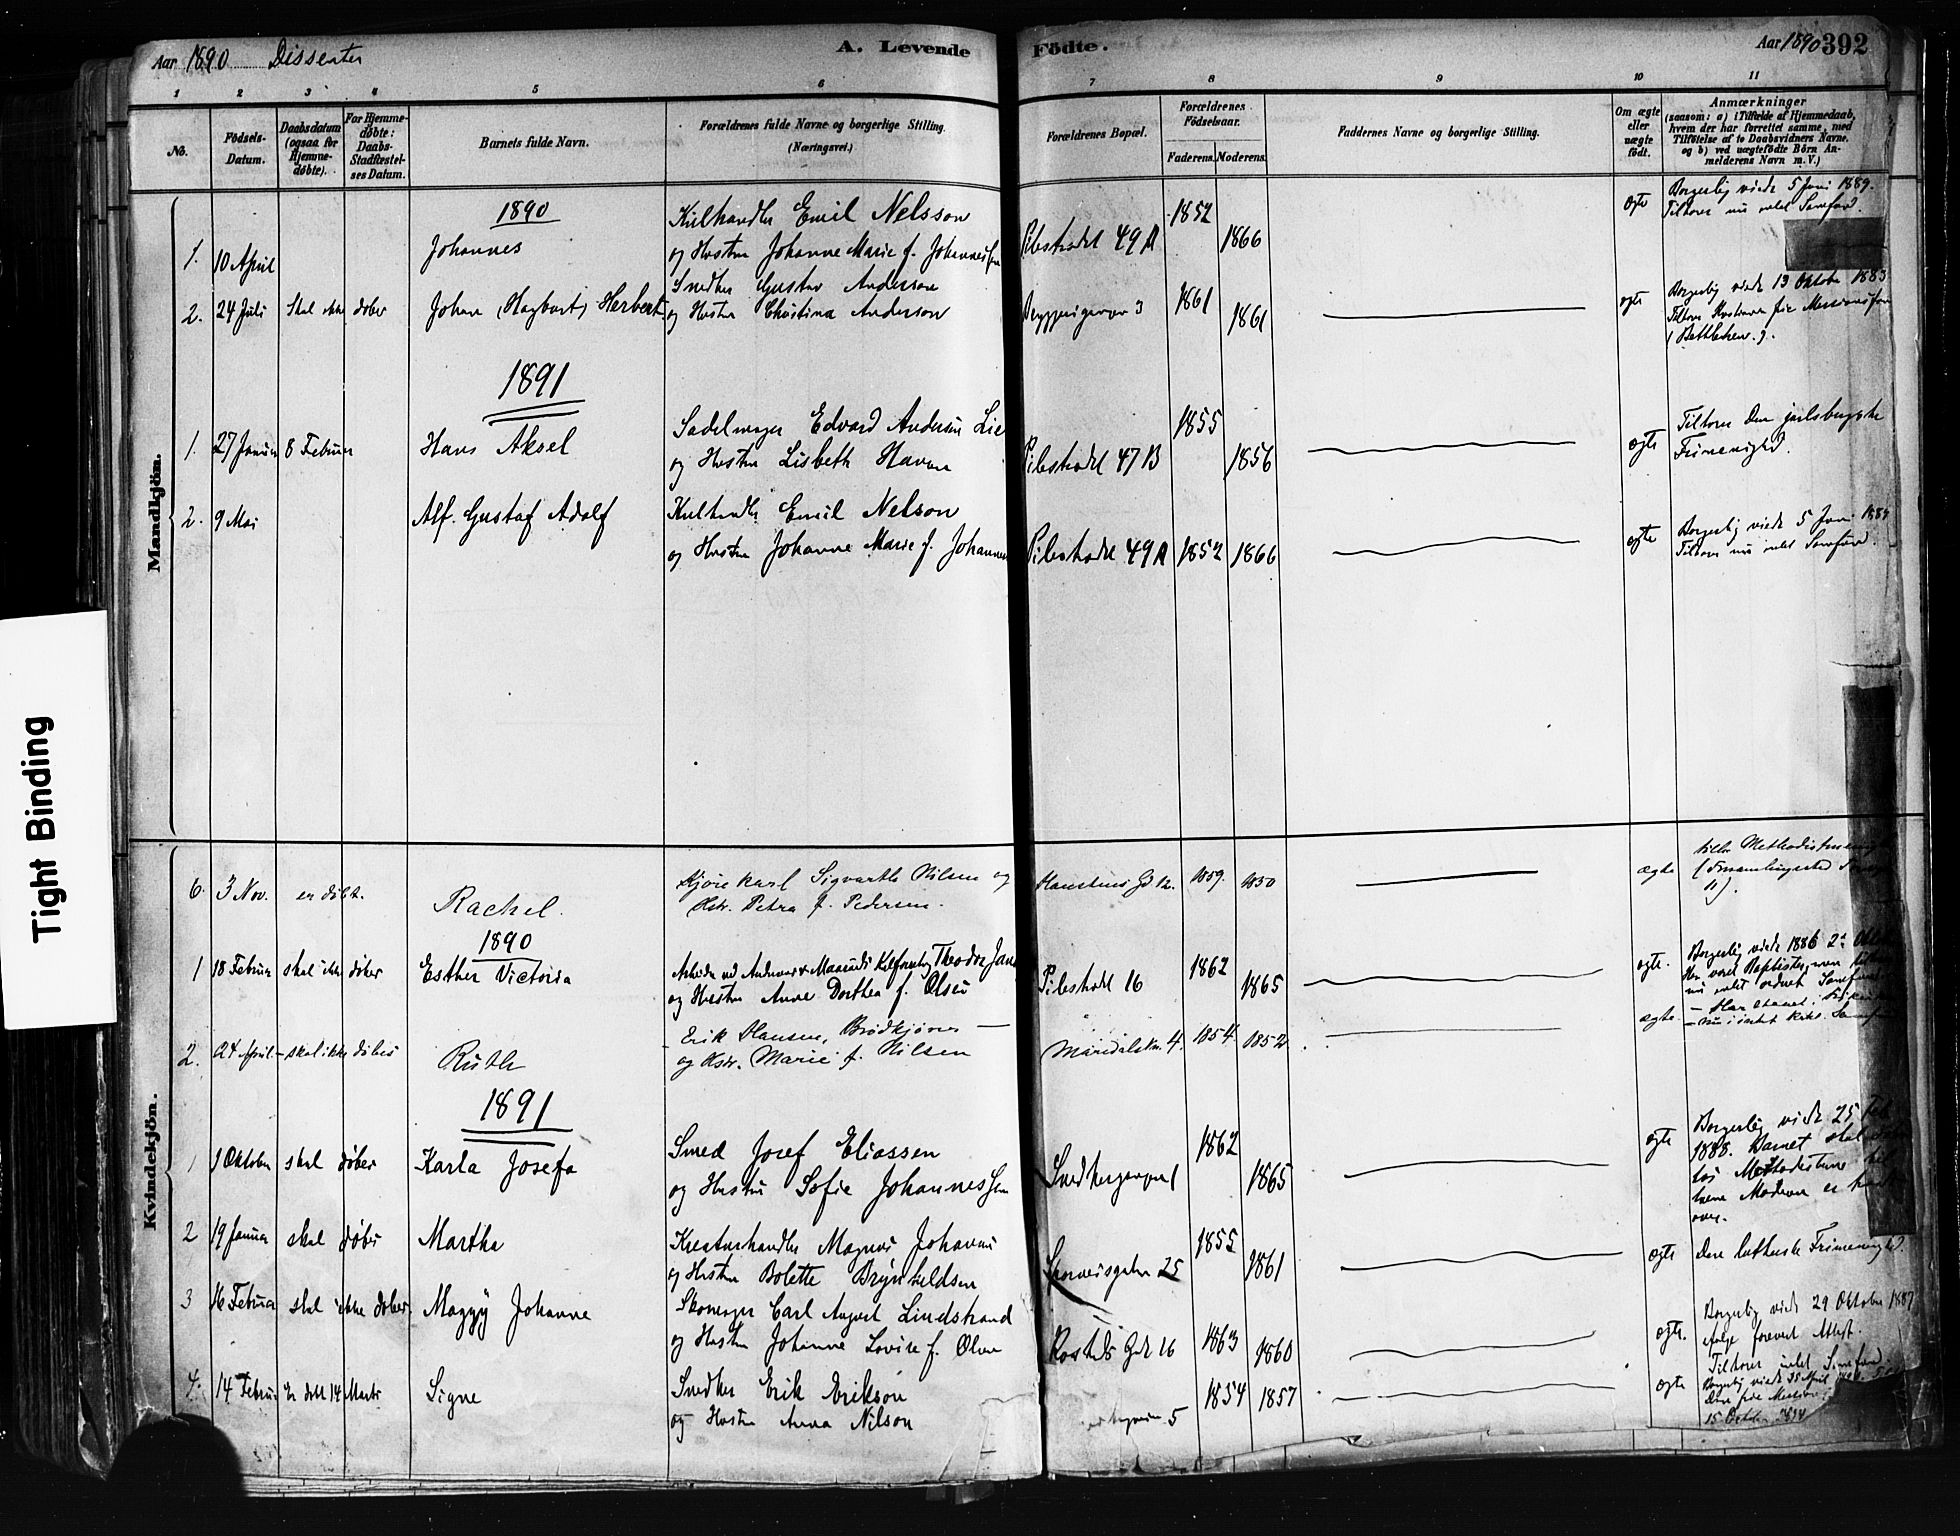 Aar 1890 Dissenter
A. Levende Födte.
Aar 1890 392
1 2 3 4 5 6 7 8 9 10 11
No.
Födsels-Datum.
Daabsdatum (ogsaa for Hjemmedøbte).
For Hjemmedøbte: Daabs-Stadfæstelses Datum.
Barnets fulde Navn.
Forældrenes fulde Navne og borgerlige Stilling.
(Næringsvei.)
Forældrenes Bopæl.
Forældrenes Födselsaar.
Faderens. Moderens.
Faddernes Navne og borgerlige Stilling.
Om ægte eller uægte født.
Anmærkninger
(saasom: a) i Tilfælde af Hjemmedaab, hvem der har forrettet samme, med Tilföielse af to Daabsvidners Navne. og b) ved uægtefödte Börn Anmelderens Navn m. V.)
Mandkjön.
1890
1. 10 April Johannes
Kulhandler Emil Nelsson
og Hustru Johanne Marie f. Johannessen
Pilestrædet 49 A 1852 1866 ægte
Borgerlig viede 5 Juni 1889.
Tilhører nu intet Samfund.
2. 24 Juli skal ikke døbes Johan (Hagbart) Herbert
Snedker Gustav Anderson
og Hustru Christina Anderson
3 1861 1861 ægte
Borgerlig viede 13 Oktober 1883
(Bethlehem.).
1891
1. 27 Januar 8 Februar Hans Aksel
Sadelmager Edvard Andersen Lie
og Hustru Lisbeth Hansen
Pilestrædet 47 B 1855 1856 ægte
Tilhører Den jarlsbergske
Frimenighed.
2. 9 Mai Alf. Gustaf Adolf
Kulhandler Emil Nelson
og Hustru Johanne Marie f. Johannes
Pilestrædet 49 A 1852 1866 ægte
Borgerlig viede 5 Juni 1889
Tilhører nu intet Samfund.
Kvindekjön.
6. 3 Nov. er døbt. Rachel.
Kjørekarl Sigvarth Nilsen og
Hstr. Petra f. Pedersen.
12. 1859. 1850 ægte
1890
1 18 Februar skal ikke døbes Esther Victoria
Arbeider ved Theodor
og Hustru Anne Dorthea f. Olsen
Pilestrædet 16 1862 1865 ægte.
Borgerlig viede 1886 2
2. 24 April - skal ikke døbes Ruth
Erik Hansen, Brødkjører
og Hstr. Marie f. Nilsen
Maridalsvn. 4. 1854. 1852 ægte
1891
1 1 Oktober skal døbes Karla Josefa
Smed Josef Eliassen
og Hustru Sofie Johannessen
Snedkergangen 1 1862 1865 ægte
Borgerlig viede 25 Feb
1888. Barnet skal døbes
hos Methodisterne
2 19 Januar skal døbes Martha
Kreaturhandler Magnus Johansen
og Hustru Bolette Brynildsen
25 1855 1861 ægte
Den lutherske Frimenighed.
3 16 Februar skal ikke døbes Maggy Johanne
Skomager Carl August Lindstrand
og Hustru Johanne Lovise f. Olsen
Rosteds Gade 16 1863 1860 ægte.
Borgerlig viede 29 Oktober 1887
ifølge forevist Attest.
Tilhører intet Samfund
4. 14 Februar Er døbt 14 Marts Signe
Snedker Erik Erikson
og Hustru Anna Nilson
5 1854 1857 ægte
15 October 1894
Tight Binding